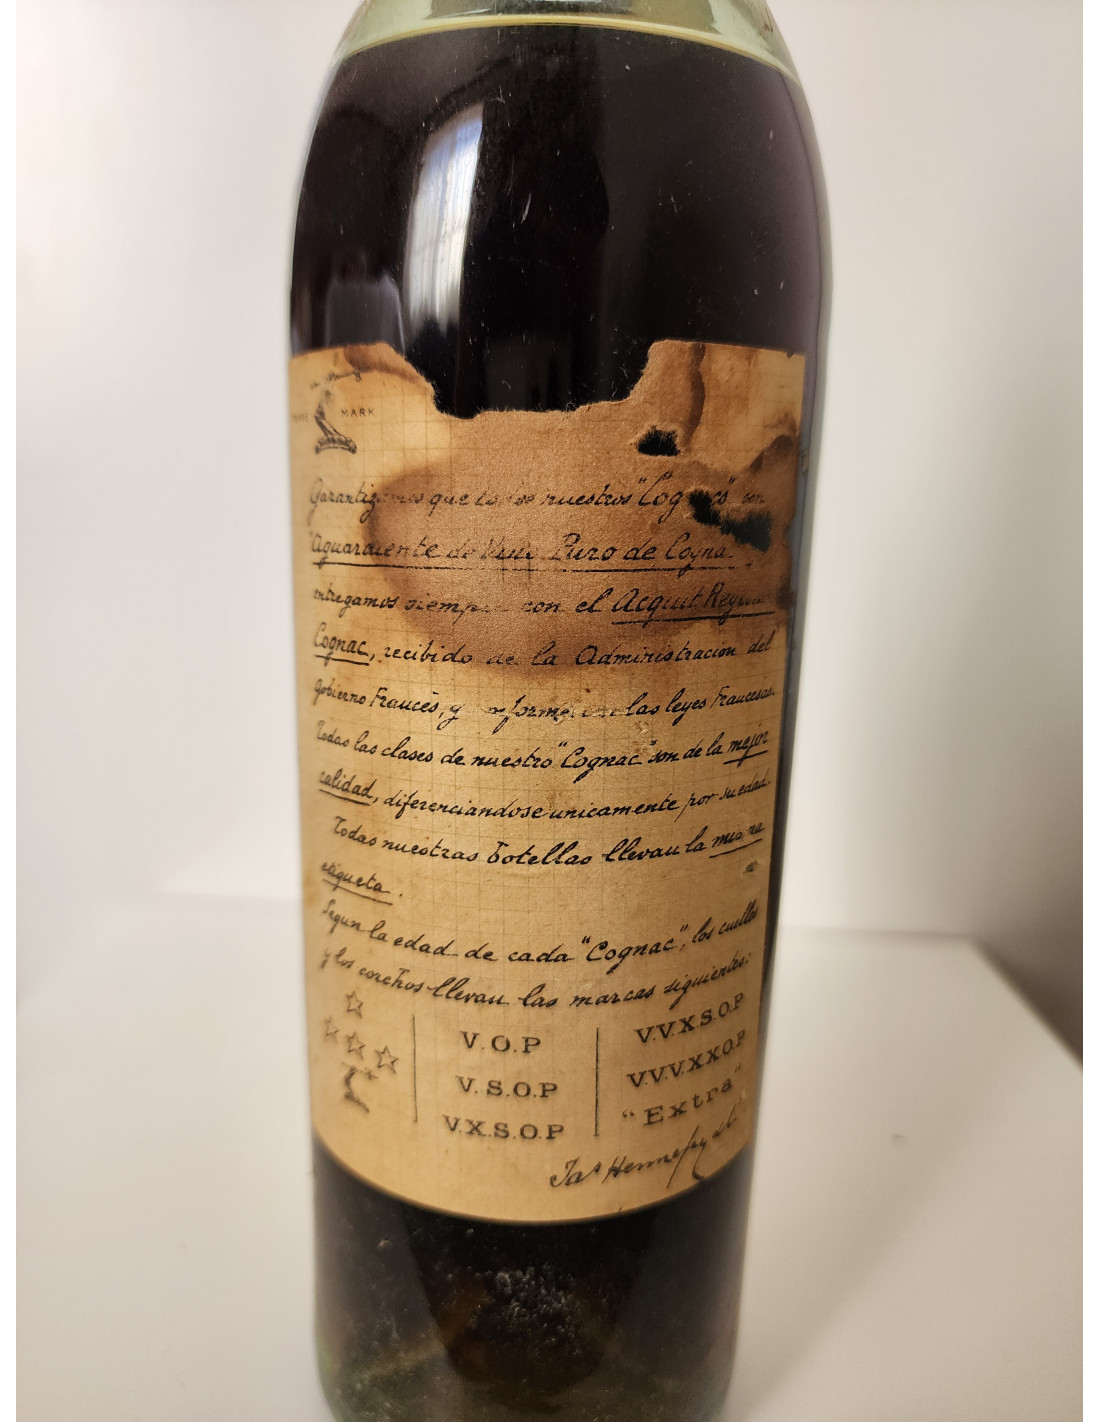 MARK
Garantizamos que todos nuestros "Cognacs" son
"Aguardiente de Vino Puro de Cogna
entregamos siempre con el Acquit Rey
Cognac, recibido de la Administracion del
Gobierno Francés, y conforme con las leyes Francesas.
Todas las clases de nuestro "Cognac" son de la mejor
calidad, diferenciandose unicamente por su edad
Todas nuestras botellas llevan la misma
etiqueta.
Segun la edad de cada "Cognac", los cuellos
y los corchos llevan las marcas siguientes:
V.O.P
V.S.O.P
V.X.S.O.P
V.V.X.S.O.P
V.V.V.X.X.O.P
"Extra"
Jas Hennessy &C